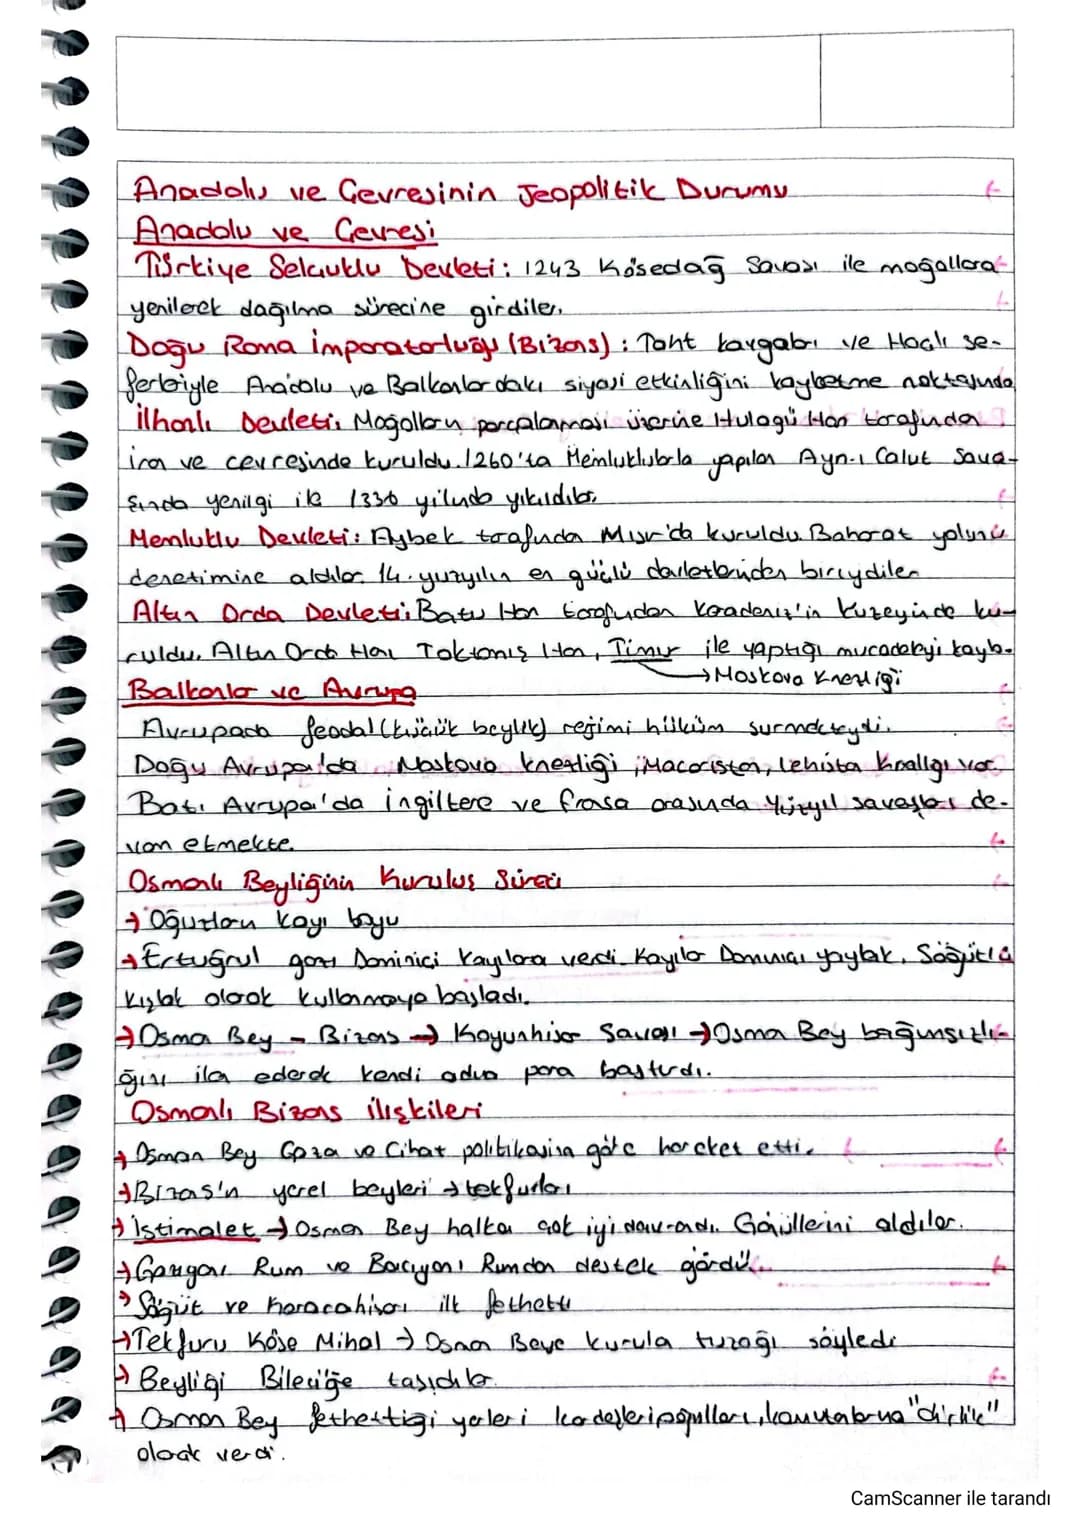 Anadolu ve Çevresinin Jeopolitik Durumu
Anadolu ve Çevresi
Türkiye Selçuklu Devleti: 1243 Kösedağ Savaşı ile moğallara
yenilerek dağılma sürecine girdiler.
Doğu Roma İmparatorluğu (Bizans): Taht kavgaları ve Haçlı se-
ferleriyle Anadolu ve Balkanlardakı siyasi etkinliğini kaybetme noktasında
İlhanlı Devleti: Moğolların parçalanması üzerine Hulagü Han tarafından
iran ve çevresinde kuruldu. 1260'ta Memluklularla yapılan Ayn-ı Calut Sava-
şında yenilgi ile 1336 yılında yıkıldılar.
Memluklu Devleti: Aybek tarafından Mısır'da kuruldu. Baharat yolunu
denetimine aldılar. 14. yüzyılın en güçlü devletlerinden biriydiler
Altın Orda Devleti: Batu Han tarafından Karadeniz'in kuzeyinde ku-
ruldu. Altın Orda Hanı Toktamış Han, Timur ile yaptığı mücadeleyi kayb.
→Moskova Knezliği
Balkanlar ve Avrupa
Avrupada feodal (küçük beylik) rejimi hüküm surmekteydi.
Doğu Avrupa'da Moskova knezliği, Macaristan, Lehistan Krallığı var
Batı Avrupa'da İngiltere ve fransa arasında Yüzyıl savaşları de-
vam etmekte.
Osmanlı Beyliğinin Kuruluş Süreci
→Oğuzların Kayı boyu
→Ertuğrul gazi Domaniçi Kayılara verdi. Kayılar Domaniçi yaylak, Söğütü
kışlak olarak kullanmaya başladı.
→Osman Bey - Bizans → Koyunhisar Savaşı →Osman Bey bağımsızlı-
ğını ilan ederek kendi adına para bastırdı.
Osmanlı Bizans ilişkileri
→Osman Bey Gaza ve Cihat politikasına göre hareket etti.
→Bizans'ın yerel beyleri →tekfurları
→İstimalet →Osman Bey halka çok iyi davrandı. Gönüllerini aldılar.
→Gaziyanı Rum ve Bacıyanı Rumdan destek gördü.
→Söğüt ve Karacahisarı ilk fethetti
→Tekfuru Köse Mihal → Osman Beye kurulan tuzağı söyledi
→Beyliği Bileciğe taşıdılar.
→Osman Bey fethettiği yerleri kardeşleri, oğulları, komutanlarına "dirlik"
olarak verdi.
CamScanner ile tarandı